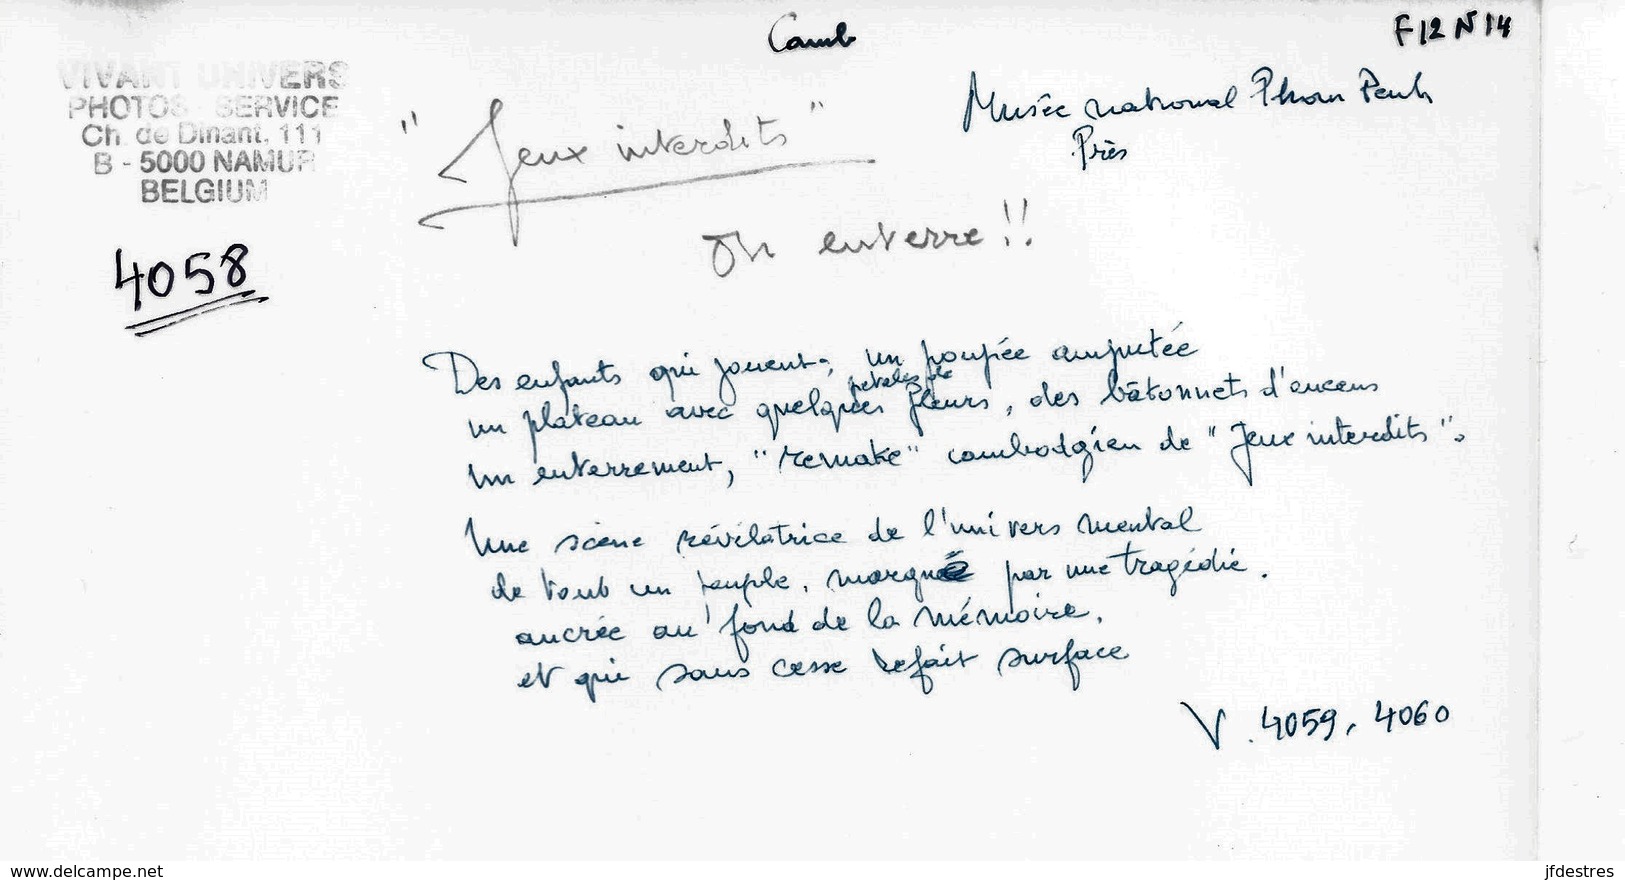 Camb
F12 N14
VIVANT UNIVERS
PHOTOS - SERVICE
Ch. de Dinant, 111
B - 5000 NAMUR
BELGIUM
4058
Musée national Phom Penh
Près
"Jeux interdits"
On enterre !!
Des enfants qui jouent, un poupée amputée
un plateau avec quelques pétales de fleurs, des bâtonnets d'encens
un enterrement, "remake" cambodgien de "Jeux interdits".
Une scène révélatrice de l'univers mental
de tout un peuple, marqué par une tragédie.
ancrée au fond de la mémoire,
et qui sans cesse refait surface
V. 4059, 4060
www.delcampe.net
jfdestres